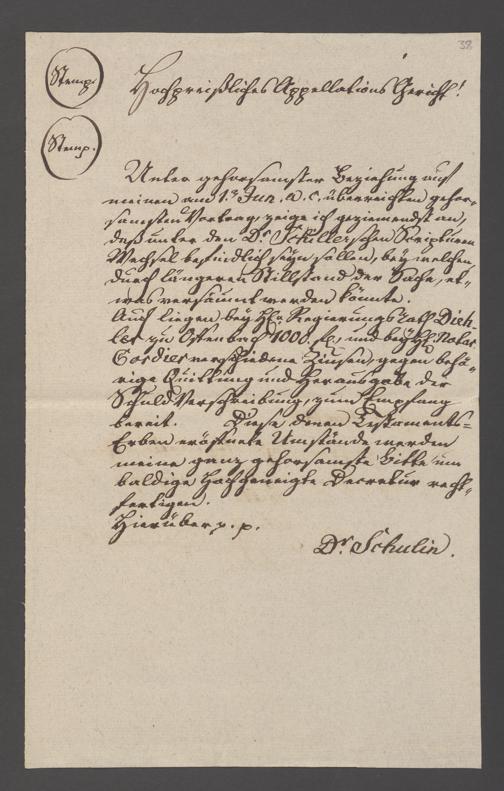 38
Stemp.
Hochpreißliches Appellations Gericht!
Stemp.
Unter gehorsamster Beziehung auf
meinen am 1. Jun. a. c. überreichten gehor-
samsten Vortrag, zeige ich geziemendst an,
daß unter den Dr. Schuller'schen Scripturen
Wechsel befindlich seyn sollen, bey welchen
durch längeren Stillstand der Sache, et-
was versäumt werden könnte.
Auch liegen bey H. Regierungs rath Dieh-
ler zu Offenbach 1000. fl. und bey H. Notar
Cordier verschiedene Zinsen, gegen behö-
rige Quittung und Herausgabe der
Schuld Verschreibung, zum Empfang
bereit. Diese denen Testaments-
Erben eröffnete Umstände werden
meine ganz gehorsamste Bitte um
baldige Hochgeneigte Decretur recht-
fertigen.
Hierüber p. p.
Dr. Schulin.